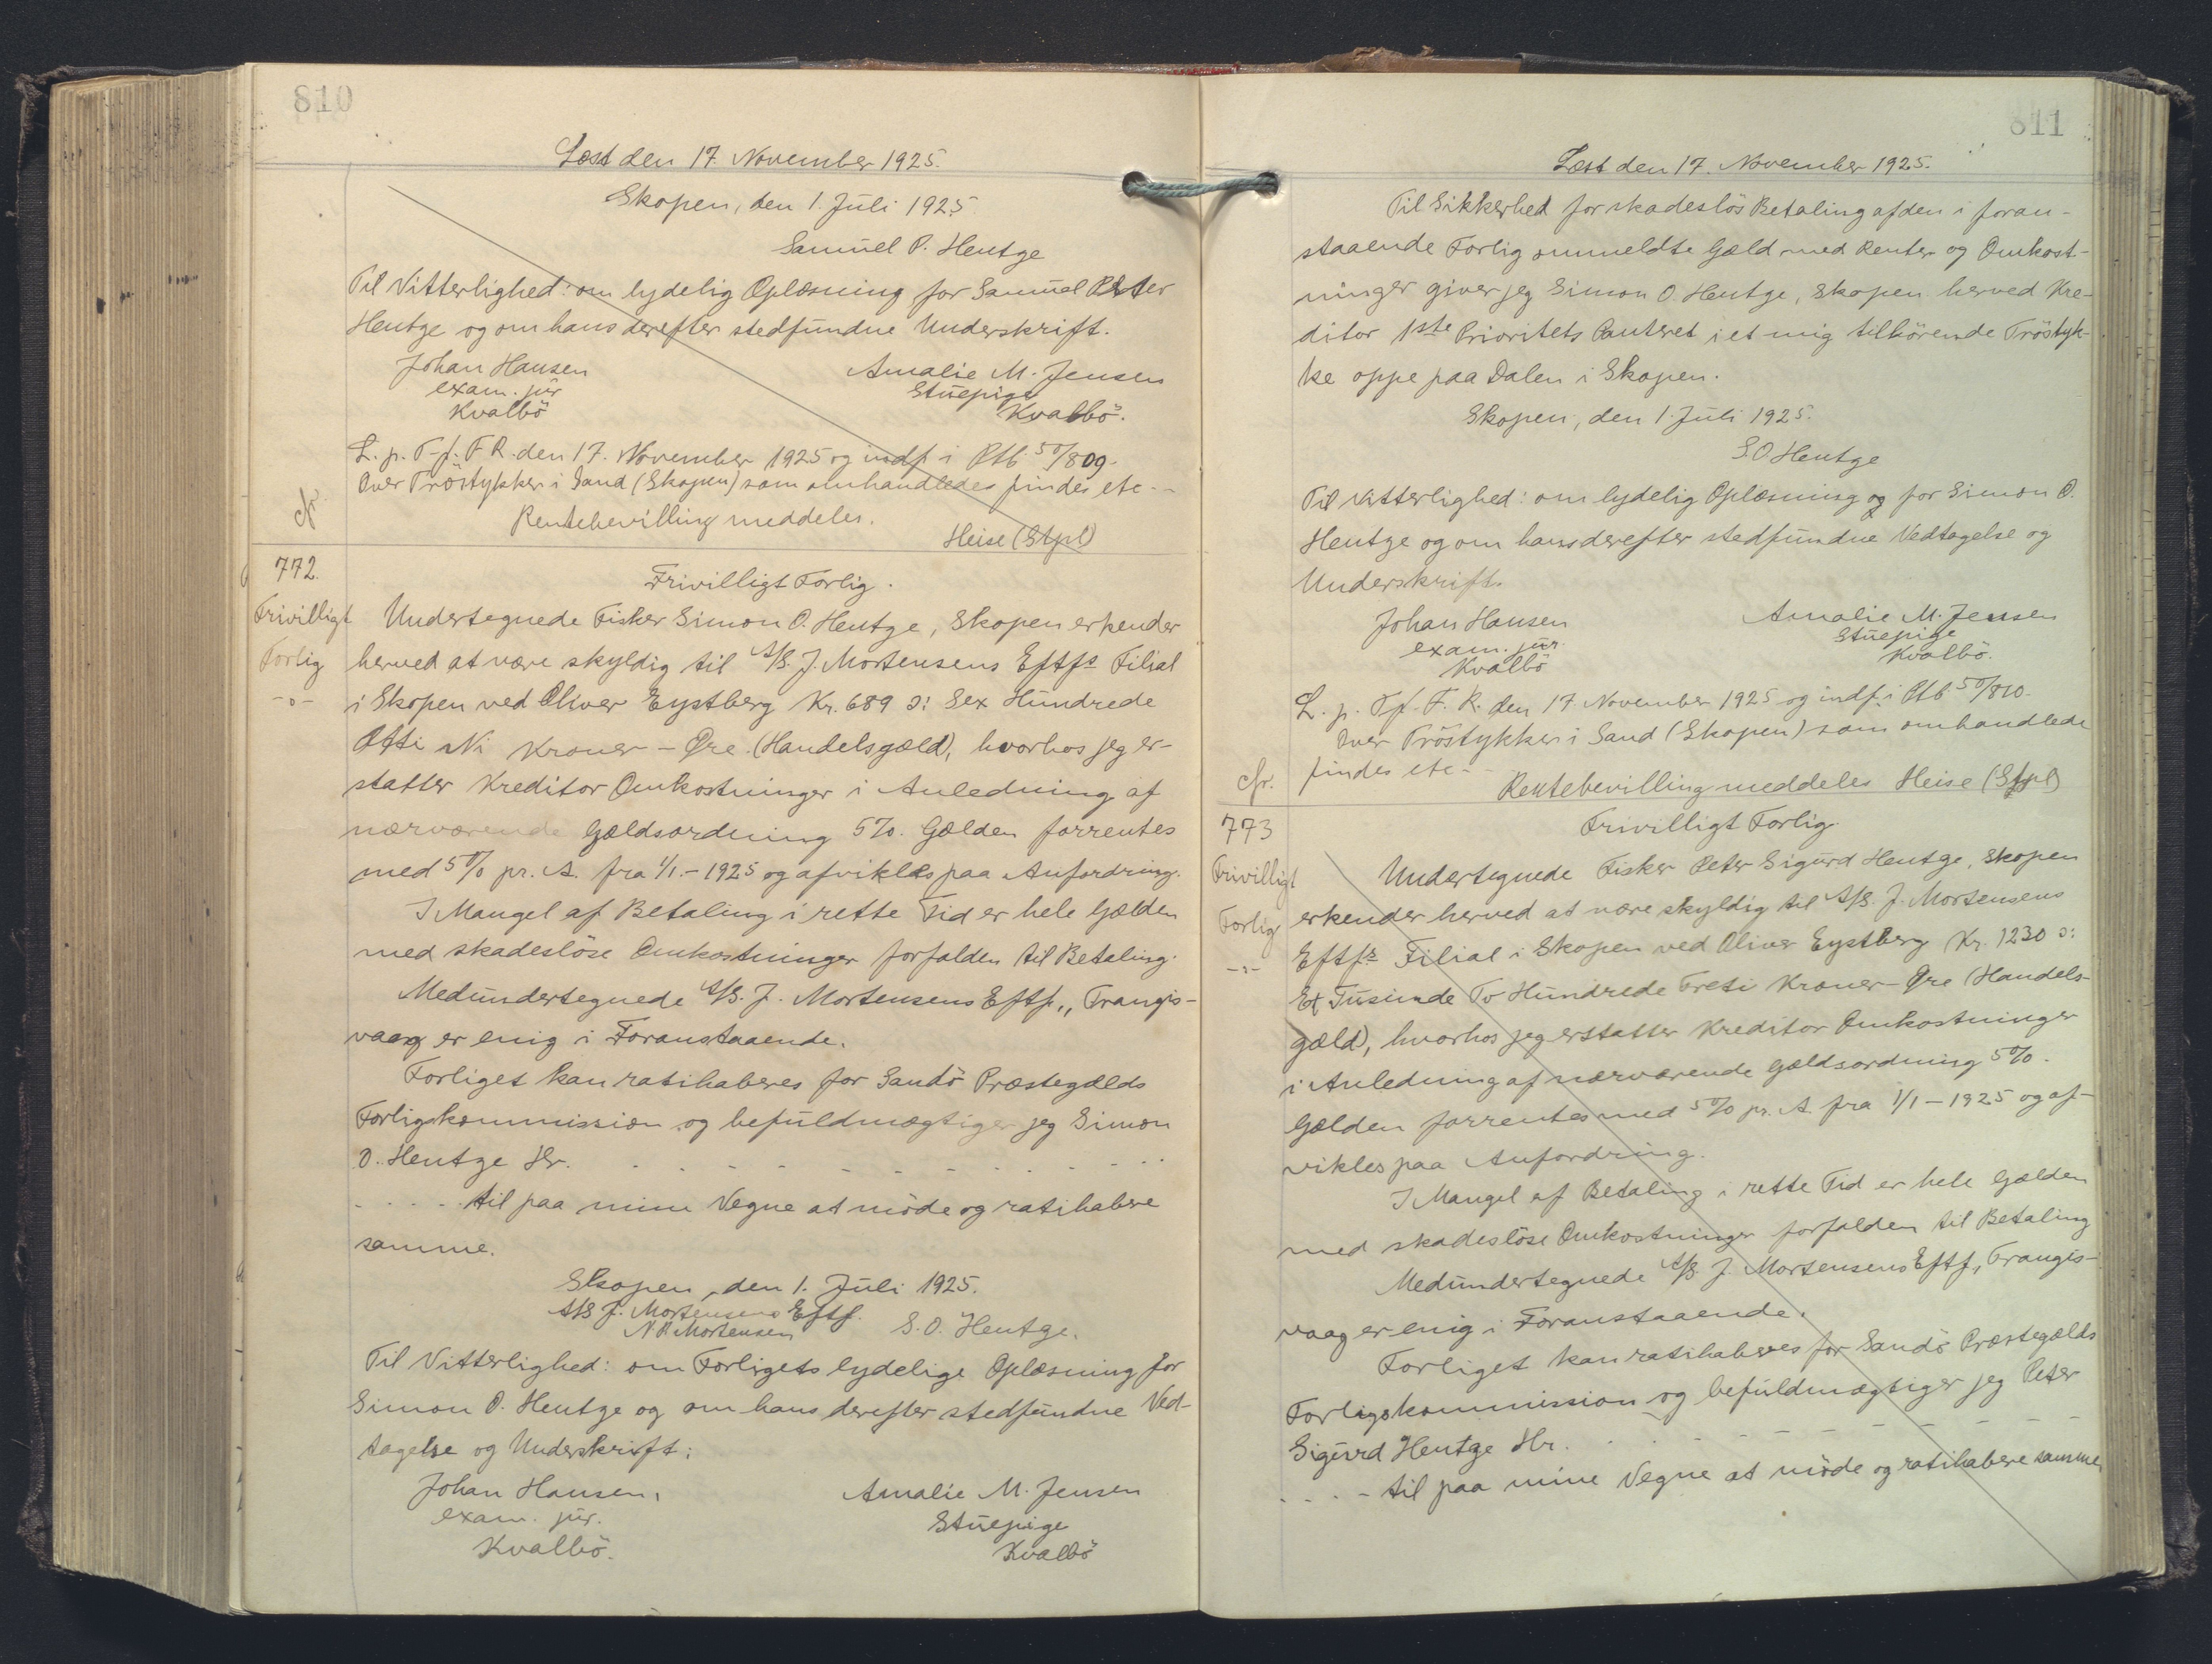 810
Læst den 17. November 1925.
Skopen, den 1. Juli 1925
Samuel P. Hentze
Til Vitterlighed: om lydelig Oplæsning for Samuel Peter
Hentze og om hans derefter stedfundne Underskrift.
Johan Hansen
exam. jur
Kvalbö
Amalie M. Jensen
Stuepige
Kvalbö.
L. p. T-f. F R. den 17. November 1925 og indf i Ptb 50/809.
Over Tröstykker i Sand (Skopen) som omhandledes findes etc.--
Rentebevilling meddeles.
Heise (Stpl)
772.
Frivilligt
Forlig
-o-
Frivilligt Forlig.
Undertegnede Fisker Simon O. Hentze, Skopen erkender
herved at være skyldig til A/S. J. Mortensens Eftfs Filial
i Skopen ved Oliver Eystberg Kr. 689 ɔ: Sex Hundrede
Otti Ni Kroner - Øre (Handelsgæld), hvorhos jeg er-
statter Kreditor Omkostninger i Anledning af
nærværende Gældsordning 5%. Gælden forrentes
med 5% pr. A. fra 1/1.-1925 og afvikles paa Anfordring.
I Mangel af Betaling i rette Tid er hele Gælden
med skadeslöse Omkostninger forfalden til Betaling.
Medundertegnede A/S. J. Mortensens Eftf., Trangis-
vaag er enig i Foranstaaende.
Forliget kan ratihaberes for Sandö Præstegælds
Forligskommission og befuldmægtiger jeg Simon
O. Hentze Hr. . . - - - - - - - - - - . .
. . - . - til paa mine Vegne at möde og ratihabere
samme.
Skopen, den 1. Juli 1925.
A/S J. Mortensens Eftf.
N P. Mortensen
S. O. Hentze.
Til Vitterlighed: om Forligets lydelige Oplæsning for
Simon O. Hentze og om hans derefter stedfundne Ved-
tagelse og Underskrift:
Johan Hansen,
exam. jur.
Kvalbö.
Amalie M. Jensen
Stuepige
Kvalbö
811
Læst den 17. November 1925.
Til Sikkerhed for skadeslös Betaling af den i foran-
staaende Forlig ommeldte Gæld med Renter og Omkost-
ninger giver jeg Simon O. Hentze, Skopen herved Kre-
ditor 1ste Prioritets Panteret i et mig tilhörende Tröstyk-
ke oppe paa Dalen i Skopen.
Skopen, den 1. Juli 1925.
S. O Hentze
Til Vitterlighed: om lydelig Oplæsning og for Simon O.
Hentze og om hans derefter stedfundne Vedtagelse og
Underskrift.
Johan Hansen
exam. jur.
Kvalbö
Amalie M. Jensen
Stuepige
Kvalbö.
L. p. Tf. F. R. den 17 November 1925 og indf. i Ptb 50/810.
Over Tröstykker i Sand (Skopen) som omhandlede
cfr.
findes etc--
Rentebevilling meddeles Heise (Stpl)
773
Frivilligt
Forlig
-"-
Frivilligt Forlig.
Undertegnede Fisker Peter Sigurd Hentze, Skopen
erkender herved at være skyldig til A/S. J. Mortensens
Eftfs Filial i Skopen ved Oliver Eystberg Kr. 1230 ɔ:
Et Tusinde To Hundrede Treti Kroner - Øre (Handels-
gæld), hvorhos jeg erstatter Kreditor Omkostninger
i Anledning af nærværende Gældsordning 5%.
Gælden forrentes med 5% pr. A. fra 1/1-1925 og af-
vikles paa Anfordring.
I Mangel af Betaling i rette Tid er hele Gælden
med skadeslöse Omkostninger forfalden til Betaling
Medundertegnede A/S. J. Mortensens Eftf, Trangis-
vaag er enig i Foranstaaende.
Forliget kan ratihaberes for Sandö Præstegælds
Forligskommission og befuldmægtiger jeg Peter
Sigurd Hentze Hr. . . - - - - - - - -
. . . - til paa mine Vegne at möde og ratihabere samme